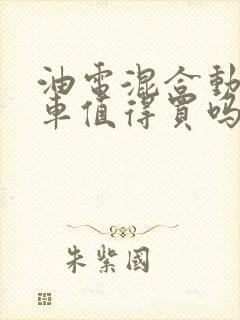 油電混合動
車值得買嗎
朱紫國